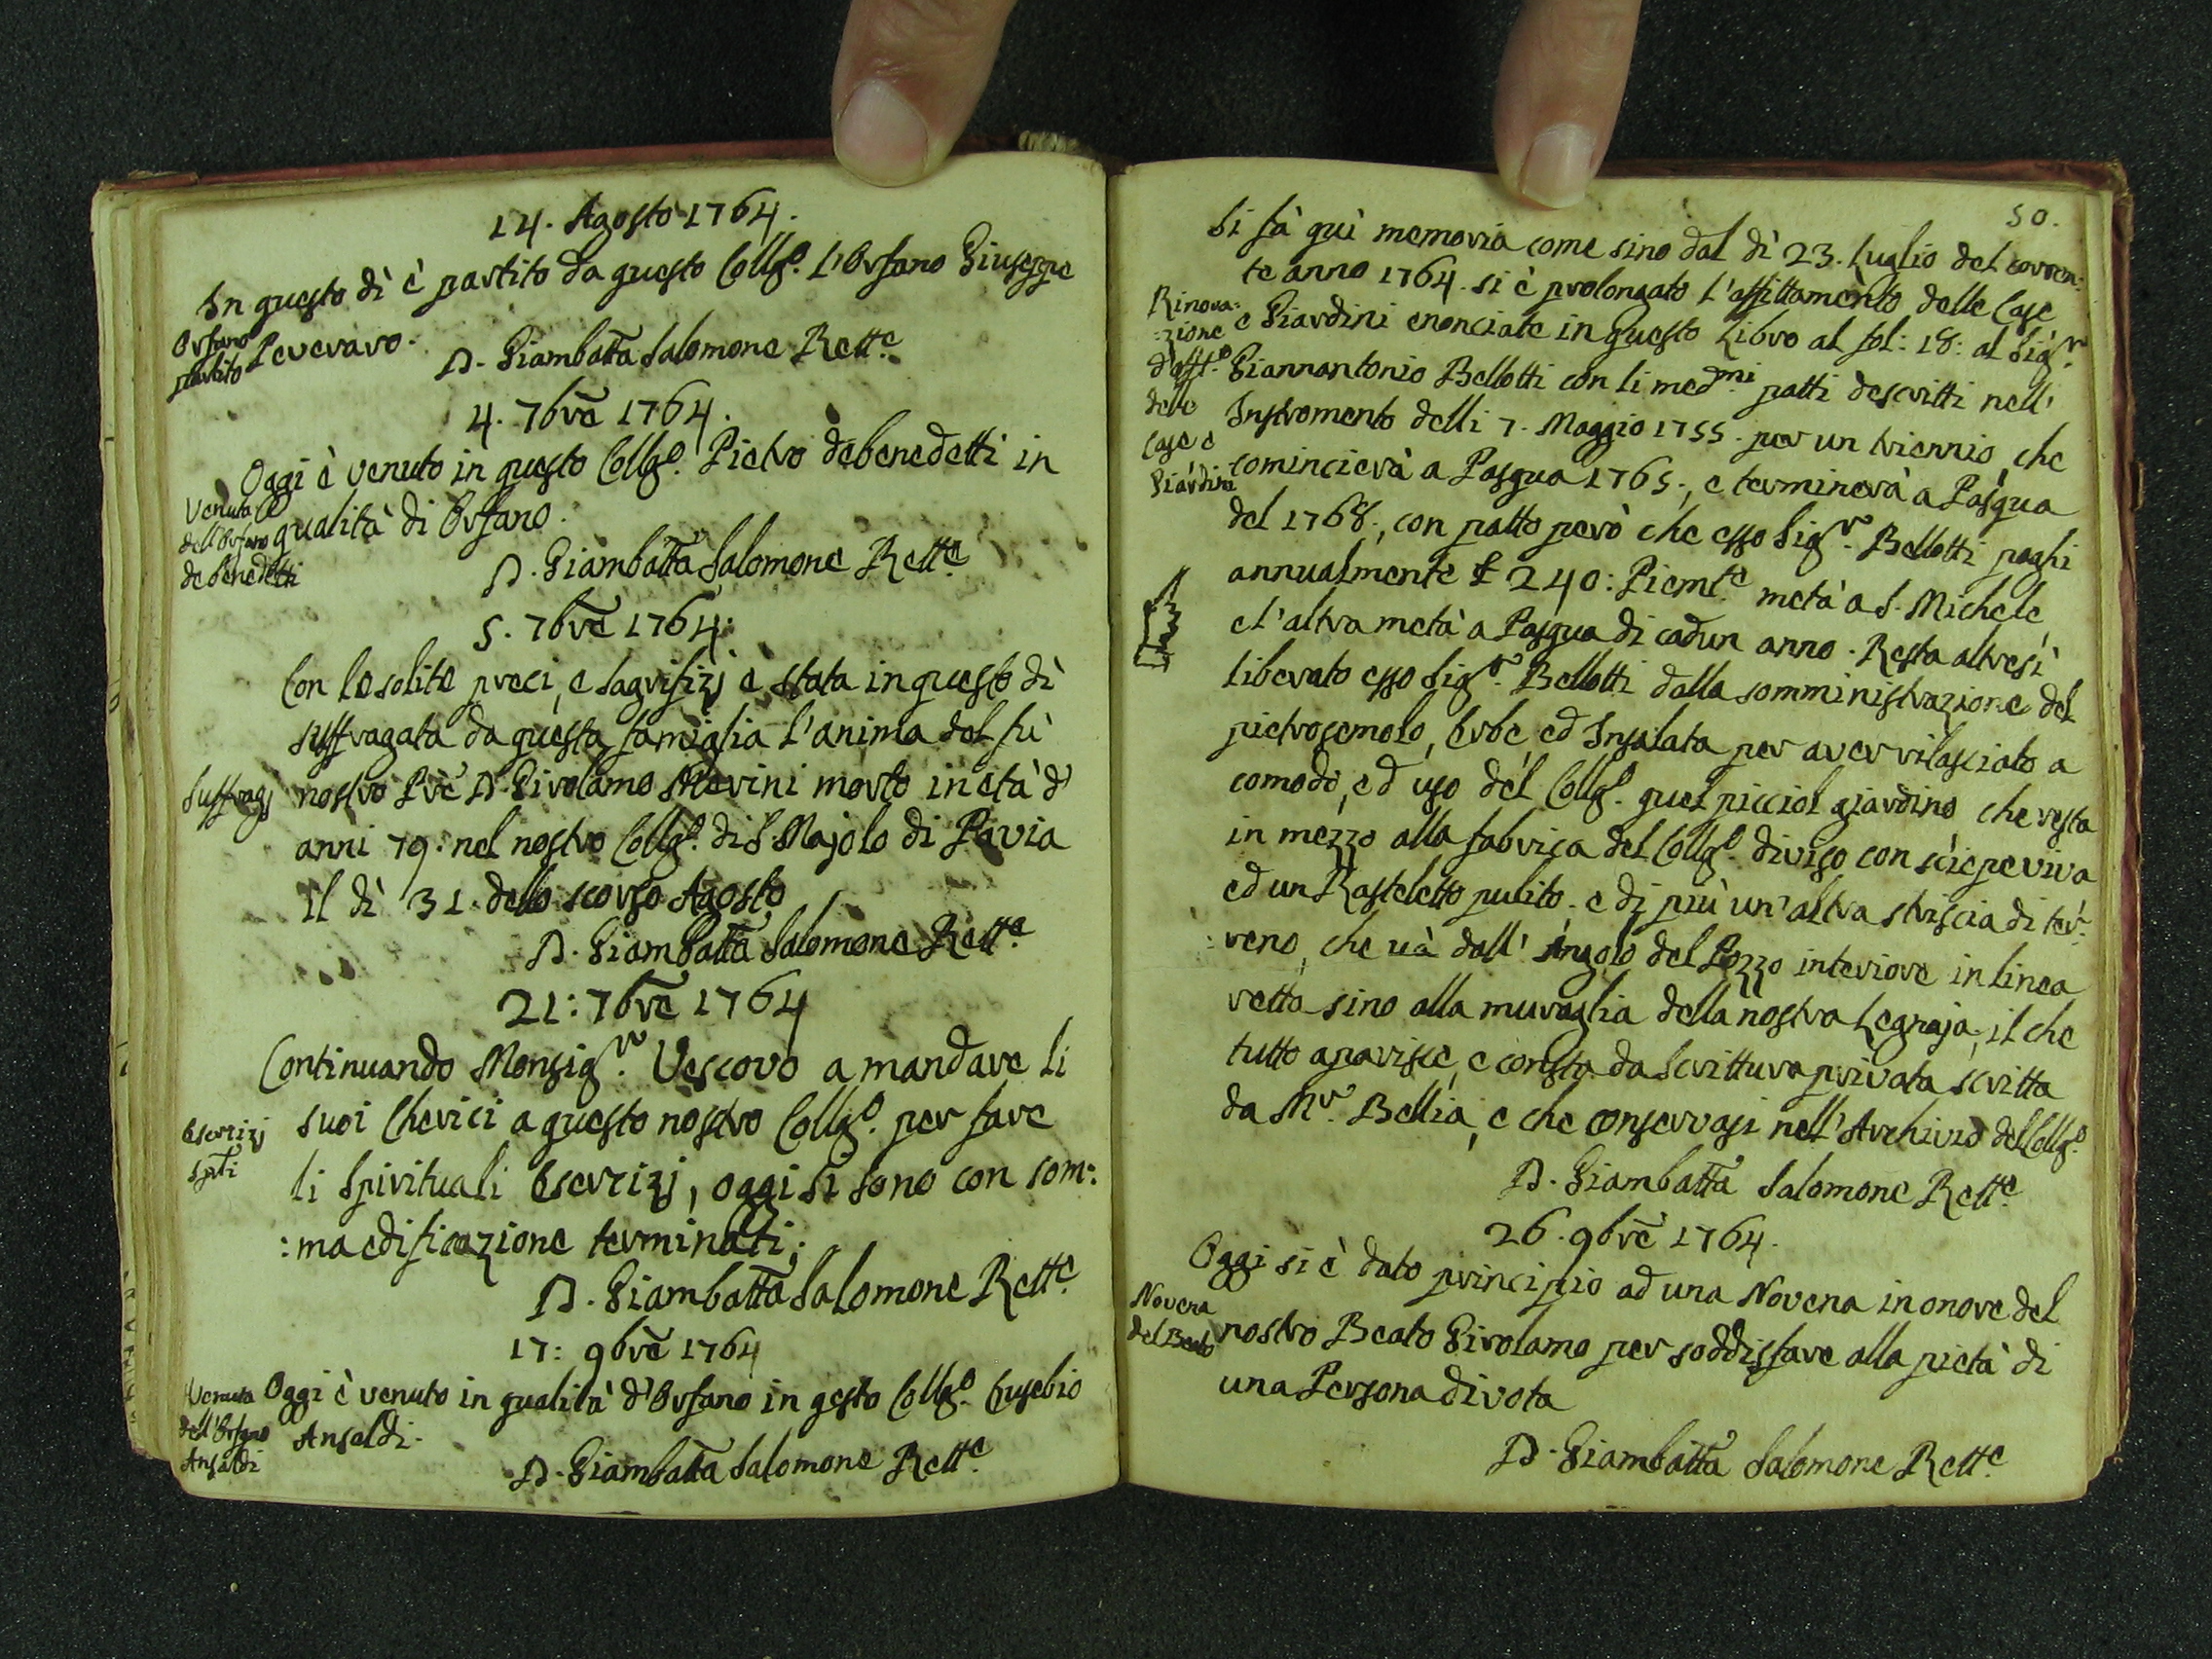 14. Agosto 1764.
In questo dì è partito da questo Collg.o l'Orfano Giuseppe
Orfano
partito
Peveraro.
D. Giambatta Salomone Rett.e
4. 7bre 1764.
Oggi è venuto in questo Collg.o Pietro debenedetti in
Venuta
dell'Orfano
debenedetti
qualità di Orfano.
D. Giambatta Salomone Rett.e
5. 7bre 1764.
Con le solite preci, e sagrifizj è stata in questo dì
suffragata da questa famiglia l'anima del fù
Suffragj
nostro Pre D. Girolamo Merini morto in età d'
anni 79. nel nostro Collg.o di S. Majolo di Pavia
il dì 31. dello scorso Agosto
D. Giambatta Salomone Rett.e
21: 7bre 1764
Continuando Monsig.r Vescovo a mandare li
Esercizj
Spti
suoi Cherici a questo nostro Collg.o per fare
li Spirituali Esercizj, oggi si sono con som:
:ma edificazione terminati;
D. Giambatta Salomone Rett.e
17: 9bre 1764
Venuta
dell'Orfano
Ansaldi
Oggi è venuto in qualità d'Orfano in qesto Collg.o Eusebio
Ansaldi.
D. Giambatta Salomone Rett.e
50.
Si fà quì memoria come sino dal dì 23. Luglio del corren:
te anno 1764. si è prolongato l'affittamento delle Case
Rinova:
:zione
d'aff.o
delle
Case e
Giardini
e Giardini enonciate in questo Libro al fol: 18: al Sig.r
Giannantonio Bellotti con li med.mi patti descritti nell'
Instromento delli 7. Maggio 1755. per un triennio, che
comincierà a Pasqua 1765., e terminerà a Pasqua
del 1768., con patto però che esso Sig.r Bellotti paghi
annualmente £ 240: Piemt.e metà a S. Michele
e l'altra metà a Pasqua di cadun anno. Resta altresì
liberato esso Sig.r Bellotti dalla somministrazione del
pietrosemolo, Erbe, ed Insalata per aver rilasciato a
comodo, ed uso del Collg.o quel picciol giardino che resta
in mezzo alla fabrica del Collg.o diviso con sciepe viva
ed un Rasteletto pulito. e di più un'altra striscia di ter:
:reno, che và dall'angolo del Pozzo interiore in linea
retta sino alla muraglia della nostra Legnaja, il che
tutto aparisce, e consta da Scrittura privata scritta
da Mr. Bellia, e che conservasi nell'Archivio del Collg.o
D. Giambatta Salomone Rett.e
26. 9bre 1764.
Oggi si è dato principio ad una Novena in onore del
Novena
del Beato
nostro Beato Girolamo per soddisfare alla pietà di
una Persona divota
D. Giambatta Salomone Rett.e